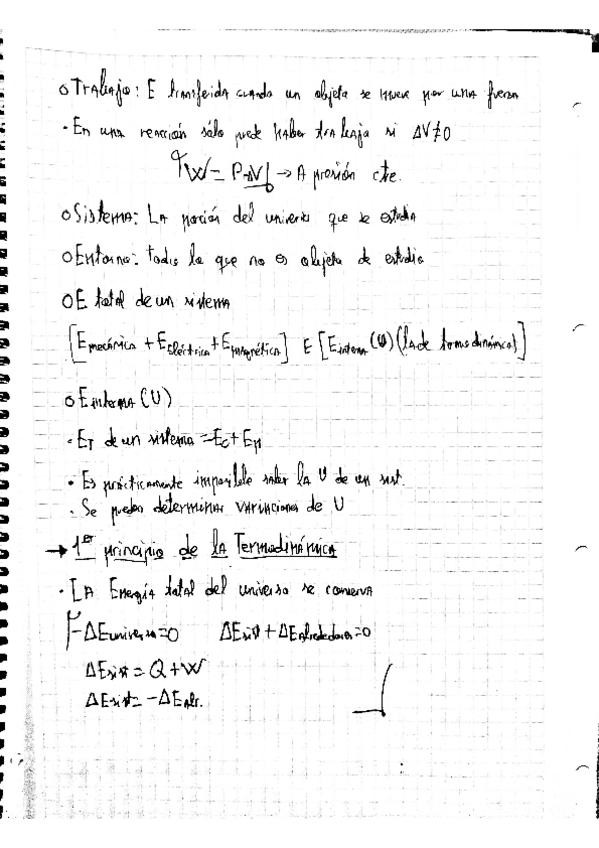 o Trabajo: E transferida cuando un objeto se mueve por una fuerza
· En una reacción sólo puede haber trabajo si ΔV≠0
W= P·ΔV → A presión cte.
o Sistema: La porción del universo que se estudia
o Entorno: todo lo que no es objeto de estudio
o E total de un sistema
[Emecánica + Eeléctrica + Emagnética] E [Einterna (U) (la de termodinámica)]
o Einterna (U)
· ET de un sistema = Ec + Ep
· Es prácticamente imposible saber la U de un sist.
· Se pueden determinar variaciones de U
→ 1er principio de la Termodinámica
· La Energía total del universo se conserva
ΔEuniverso=0 ΔEsist + ΔEalrededores=0
ΔEsist = Q + W
ΔEsist= -ΔEalr.